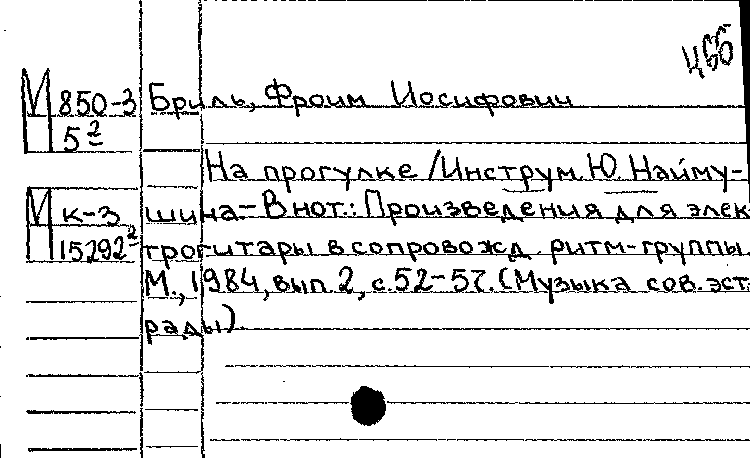 цбб
М 850-3 Бриль, Фроим Иосифович
5²
На прогулке /Инструм. Ю. Найму-
М к-3 шина.- В нот.: Произведения для элек
15292² трогитары в сопровожд. ритм-группы.
М., 1984, вып. 2, с. 52-57. (Музыка сов. эст-
рады).